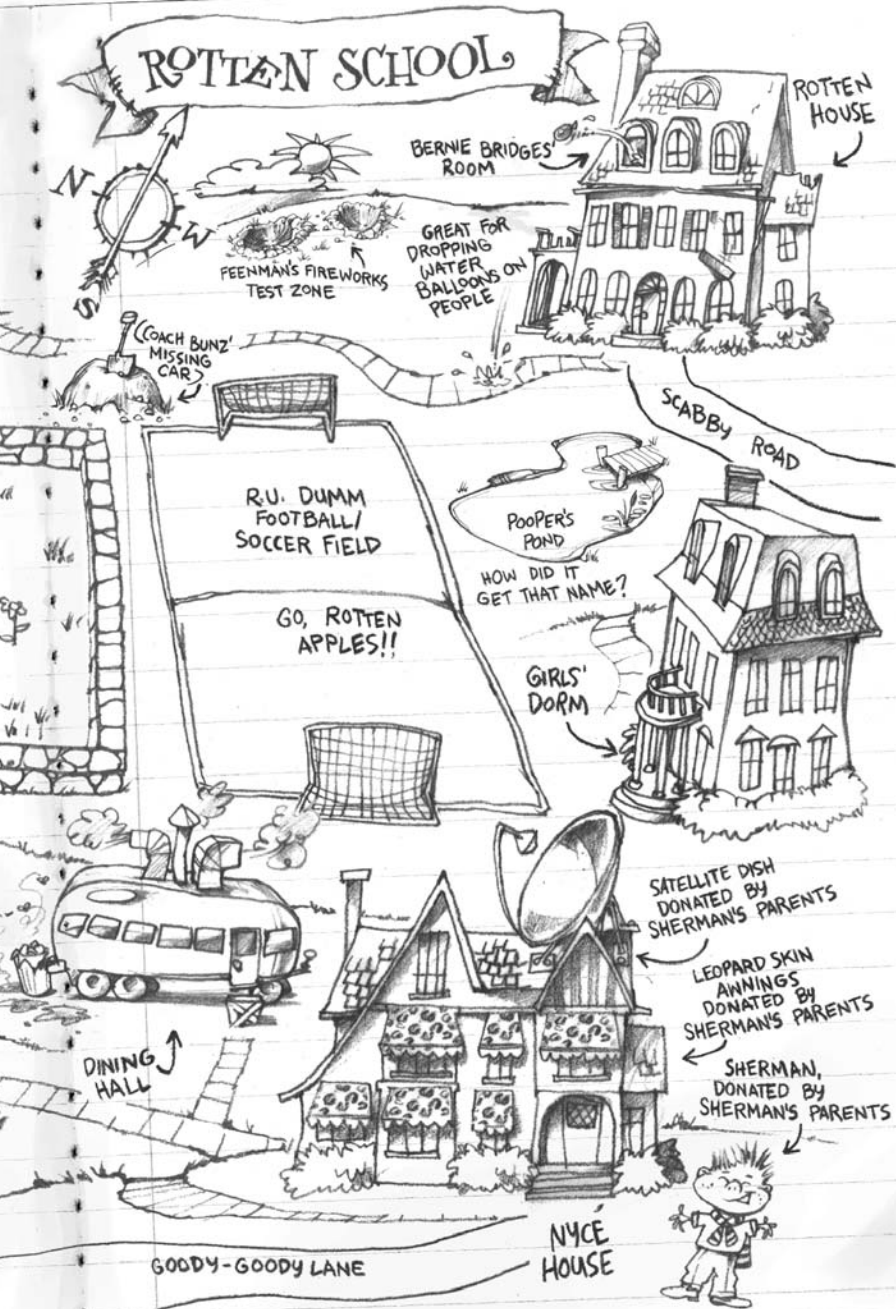 ROTTEN SCHOOL
ROTTEN
HOUSE
BERNIE BRIDGES'
ROOM
N
W
S
FEENMAN'S FIREWORKS
TEST ZONE
GREAT FOR
DROPPING
WATER
BALLOONS ON
PEOPLE
(COACH BUNZ'
MISSING
CAR)
SCABBY ROAD
R.U. DUMM
FOOTBALL/
SOCCER FIELD
GO, ROTTEN
APPLES!!
POOPER'S
POND
HOW DID IT
GET THAT NAME?
GIRLS'
DORM
SATELLITE DISH
DONATED BY
SHERMAN'S PARENTS
LEOPARD SKIN
AWNINGS
DONATED BY
SHERMAN'S PARENTS
DINING
HALL
SHERMAN,
DONATED BY
SHERMAN'S PARENTS
NYCE
HOUSE
GOODY-GOODY LANE